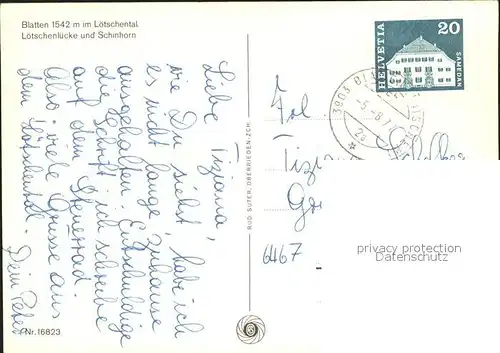 Blatten 1542 m im Lötschental
Lötschenlücke und Schinhorn
Liebe Tiziana,
wie Du siehst, habe ich
es nicht lange zuhause
ausgehalten. Entschuldige
die Schrift, ich schreibe
auf dem Steuerrad
Also: viele Grüsse aus
dem Lötschental.
Dein Peter
Nr.16823
RUD. SUTER, OBERRIEDEN-ZCH
HELVETIA
20
SAMEDAN
3903 BLATTEN
-5.-8
Frl.
Tiziana
6467
privacy protection
Datenschutz